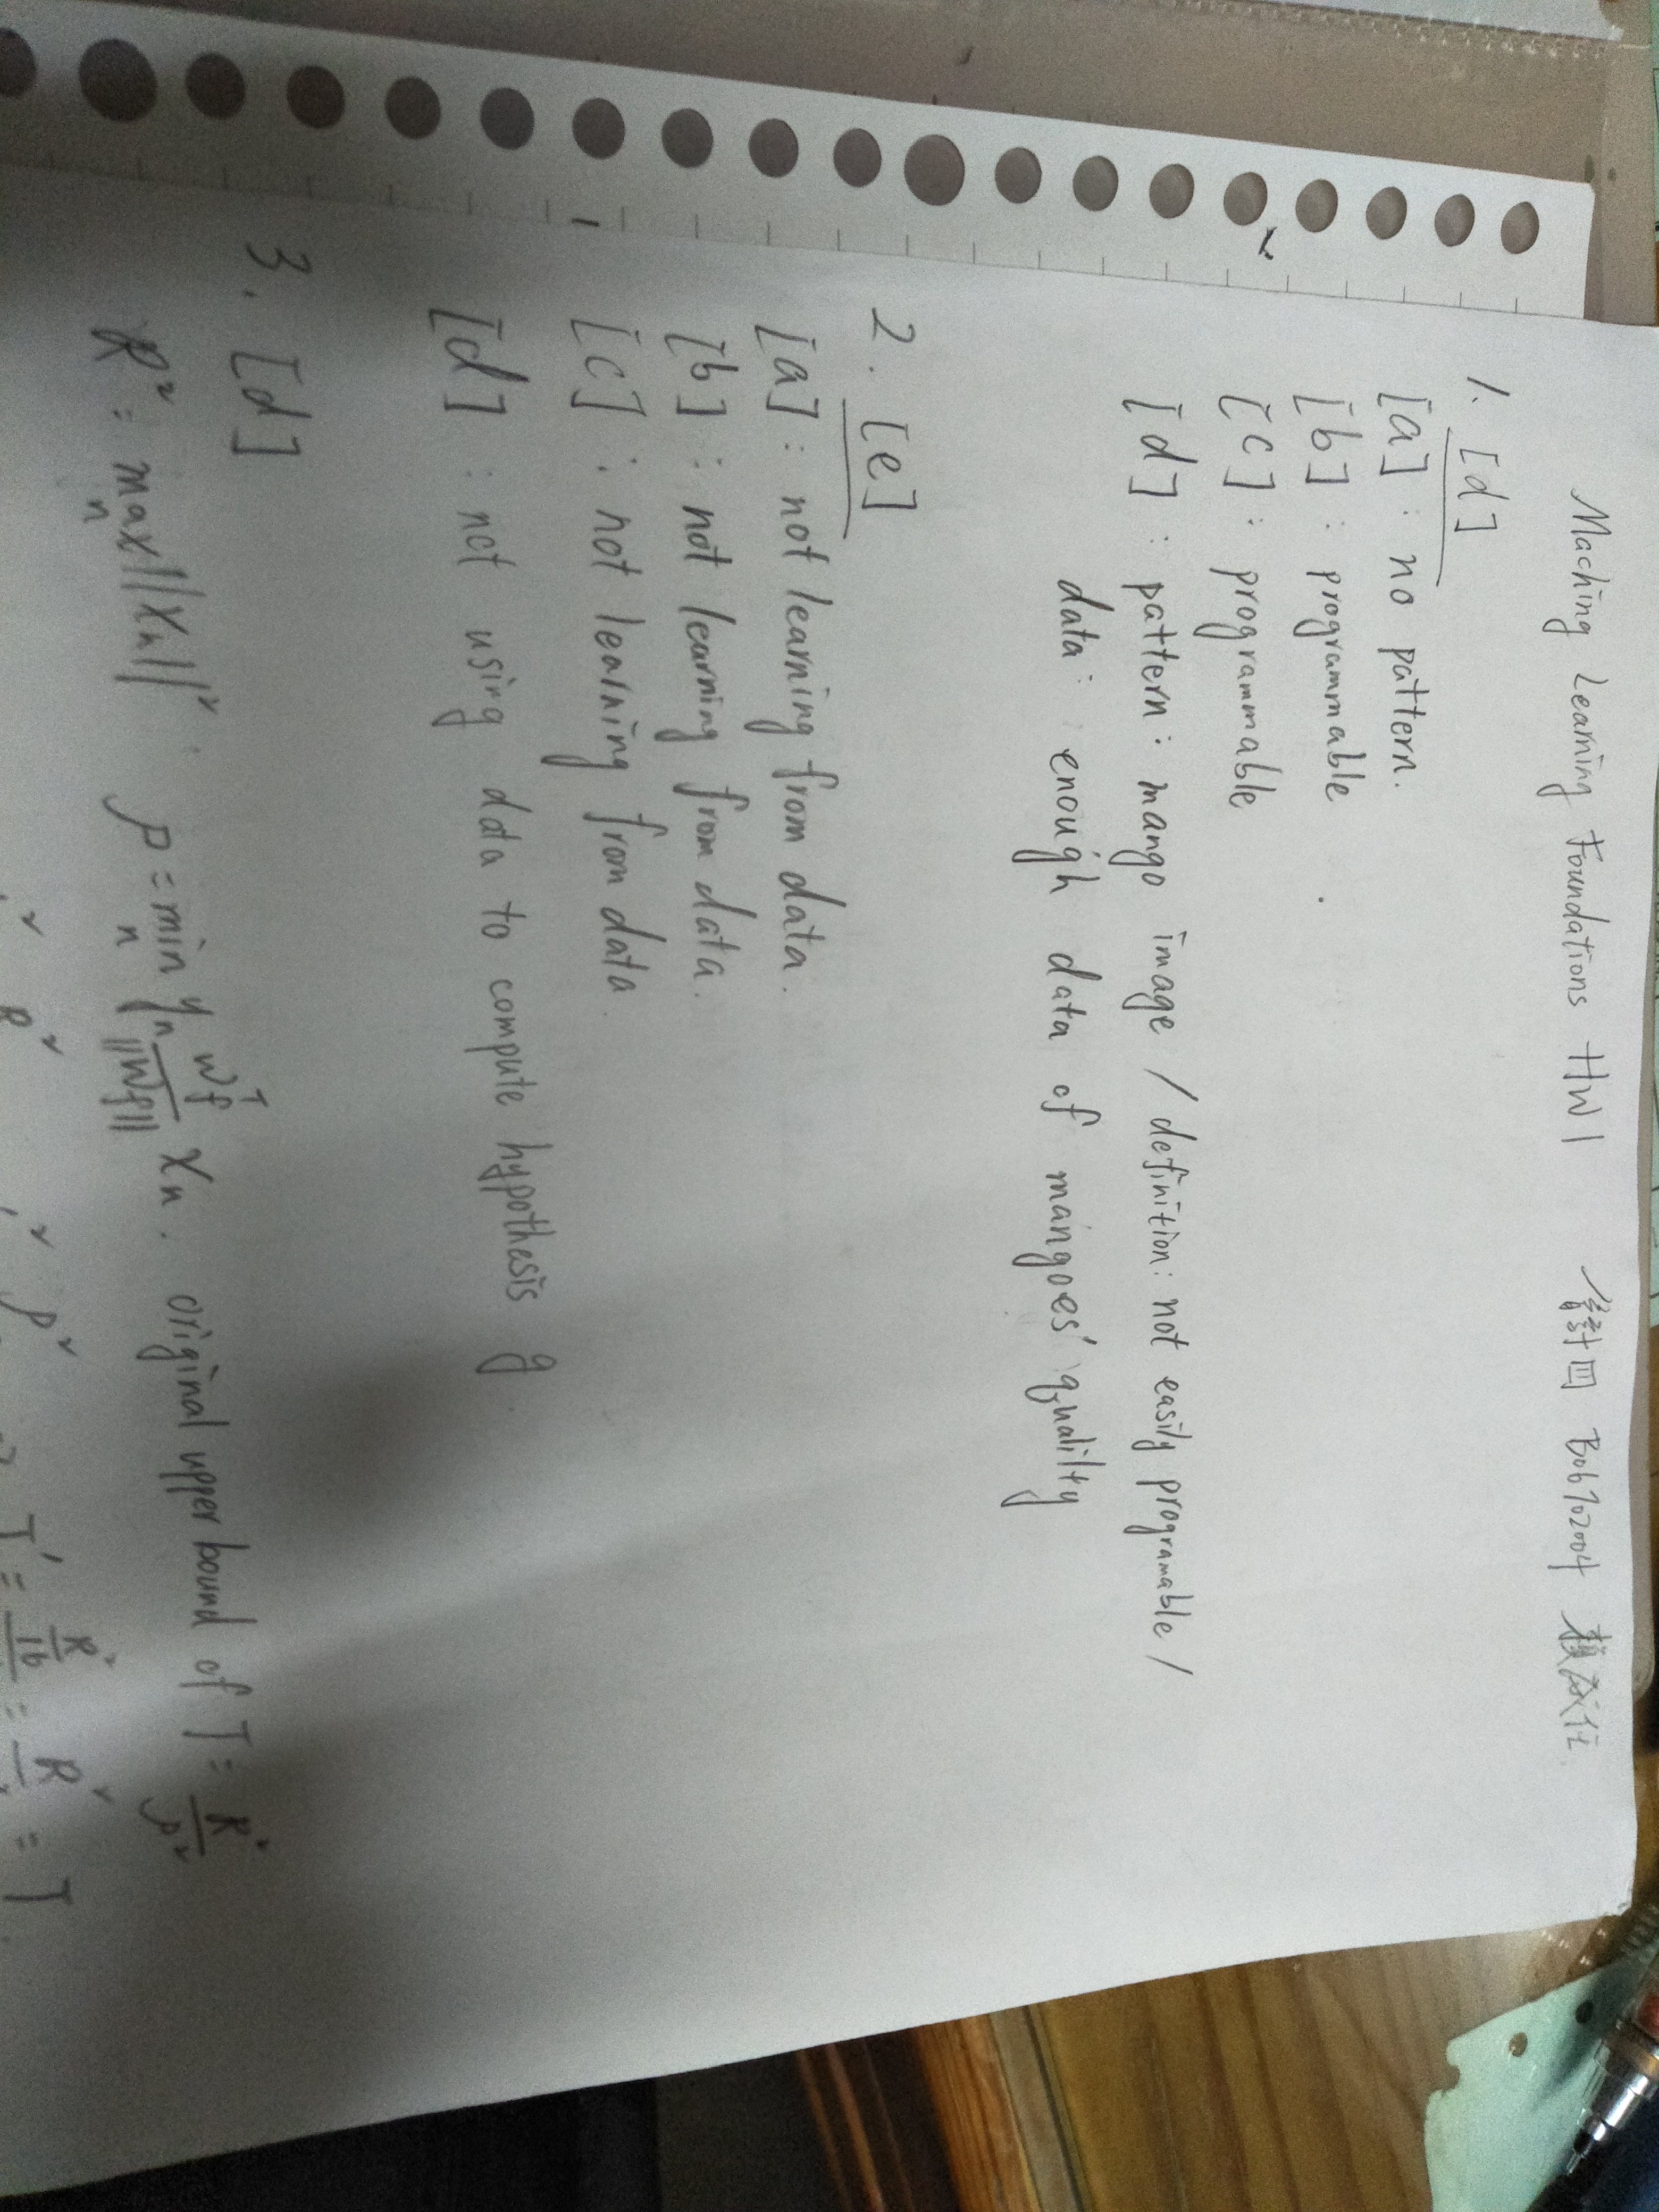 Maching Learning Foundations HW1 會計四 B06702004
1. [d]
[a] : no pattern.
[b] : programmable
[c] : programmable
[d] : pattern: mango image / definition: not easily programable /
data: enough data of mangoes' quality
2. [e]
[a] : not learning from data.
[b] : not learning from data.
[c] : not learning from data
[d] : not using data to compute hypothesis g
3. [d]
R² = max_n ||x_n||² ρ = min_n y_n w_f^T/||w_f|| x_n. original upper bound of T = R²/ρ²
T' = = = T